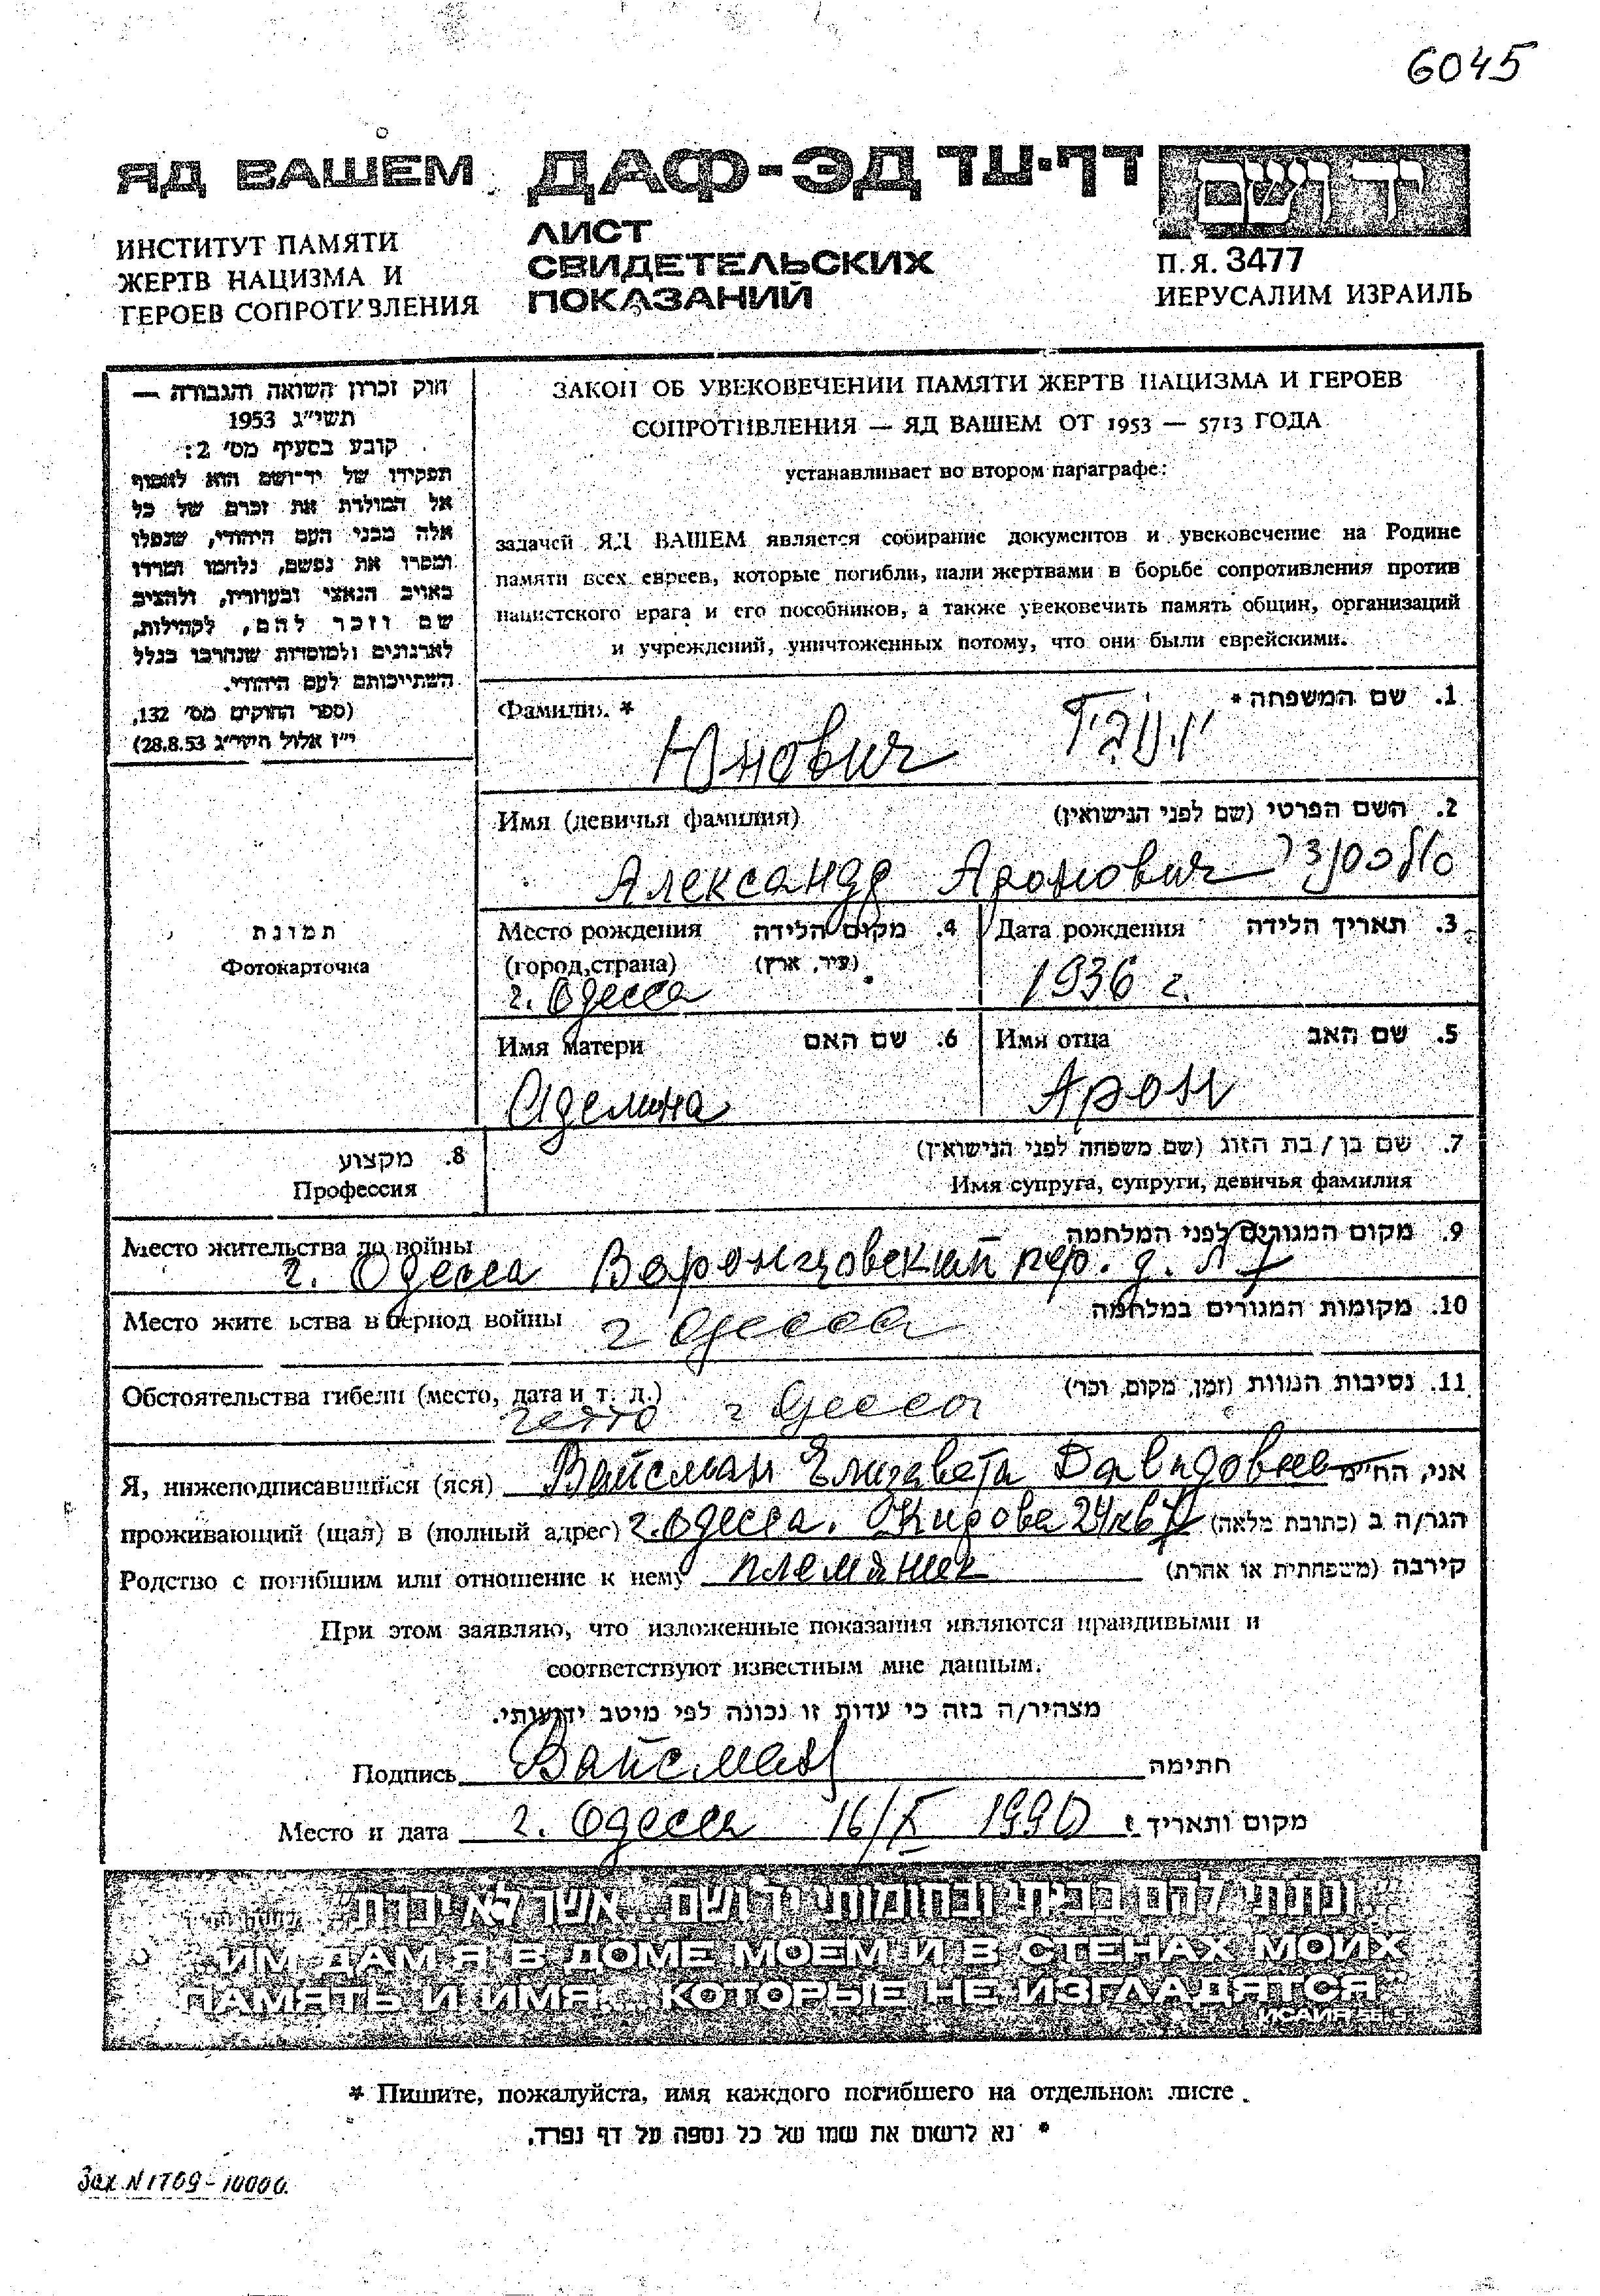 6045
ЯД ВАШЕМ
ДАФ-ЭД דף-עד
יד ושם
ИНСТИТУТ ПАМЯТИ
ЖЕРТВ НАЦИЗМА И
ГЕРОЕВ СОПРОТИВЛЕНИЯ
ЛИСТ
СВИДЕТЕЛЬСКИХ
ПОКАЗАНИЙ
П.Я. 3477
ИЕРУСАЛИМ ИЗРАИЛЬ
חוק זכרון השואה והגבורה —
תשי"ג 1953
קובע בסעיף מס' 2:
תפקידו של יד-ושם הוא לאסוף
אל המולדת את זכרם של כל
אלה מבני העם היהודי, שנפלו
ומסרו את נפשם, נלחמו ומרדו
באויב הנאצי ובעוזריו, ולהציב
שם וזכר להם, לקהילות,
לארגונים ולמוסדות שנחרבו בגלל
השתייכותם לעם היהודי.
(ספר החוקים מס' 132,
י"ז אלול תשי"ג 28.8.53)
ЗАКОН ОБ УВЕКОВЕЧЕНИИ ПАМЯТИ ЖЕРТВ НАЦИЗМА И ГЕРОЕВ
СОПРОТИВЛЕНИЯ — ЯД ВАШЕМ ОТ 1953 — 5713 ГОДА
устанавливает во втором параграфе:
задачей ЯД ВАШЕМ является собирание документов и увековечение на Родине
памяти всех евреев, которые погибли, пали жертвами в борьбе сопротивления против
нацистского врага и его пособников, а также увековечить память общин, организаций
и учреждений, уничтоженных потому, что они были еврейскими.
Фамилия * 1. שם המשפחה *
Юнович
Имя (девичья фамилия) 2. השם הפרטי (שם לפני הנישואין)
Александр Аронович
Место рождения 4. מקום הלידה
(город,страна) (עיר, ארץ)
г. Одесса
Дата рождения 3. תאריך הלידה
1936 г.
Имя матери 6. שם האם
Аделина
Имя отца 5. שם האב
Арон
תמונת
Фотокарточка
8. מקצוע
Профессия
7. שם בן / בת הזוג (שם משפחה לפני הנישואין)
Имя супруга, супруги, девичья фамилия
Место жительства до войны 9. מקום המגורים לפני המלחמה
г. Одесса Воронцовский пер. д. № 7
Место жительства в период войны 10. מקומות המגורים במלחמה
г Одесса
Обстоятельства гибели (место, дата и т. д.) 11. נסיבות המוות (זמן, מקום, וכו')
гетто г Одесса
Я, нижеподписавшийся (яся) Вайсман Елизавета Давидовна אני, החי"מ
проживающий (щая) в (полный адрес) г. Одесса. Кирова 24 кв הגר/ה ב (כתובת מלאה)
Родство с погибшим или отношение к нему племянник קירבה (משפחתית או אחרת)
При этом заявляю, что изложенные показания являются правдивыми и
соответствуют известным мне данным.
מצהיר/ה בזה כי עדות זו נכונה לפי מיטב ידיעותי.
Подпись Вайсман חתימה
Место и дата г. Одесса 16/X 1990 מקום ותאריך
"...ונתתי להם בביתי ובחומותי יד ושם... אשר לא יכרת"
"...ИМ ДАМ Я В ДОМЕ МОЕМ И В СТЕНАХ МОИХ
ПАМЯТЬ И ИМЯ... КОТОРЫЕ НЕ ИЗГЛАДЯТСЯ."
* Пишите, пожалуйста, имя каждого погибшего на отдельном листе.
* נא לרשום את שמו של כל נספה על דף נפרד.
Зак. N 1709-10000.